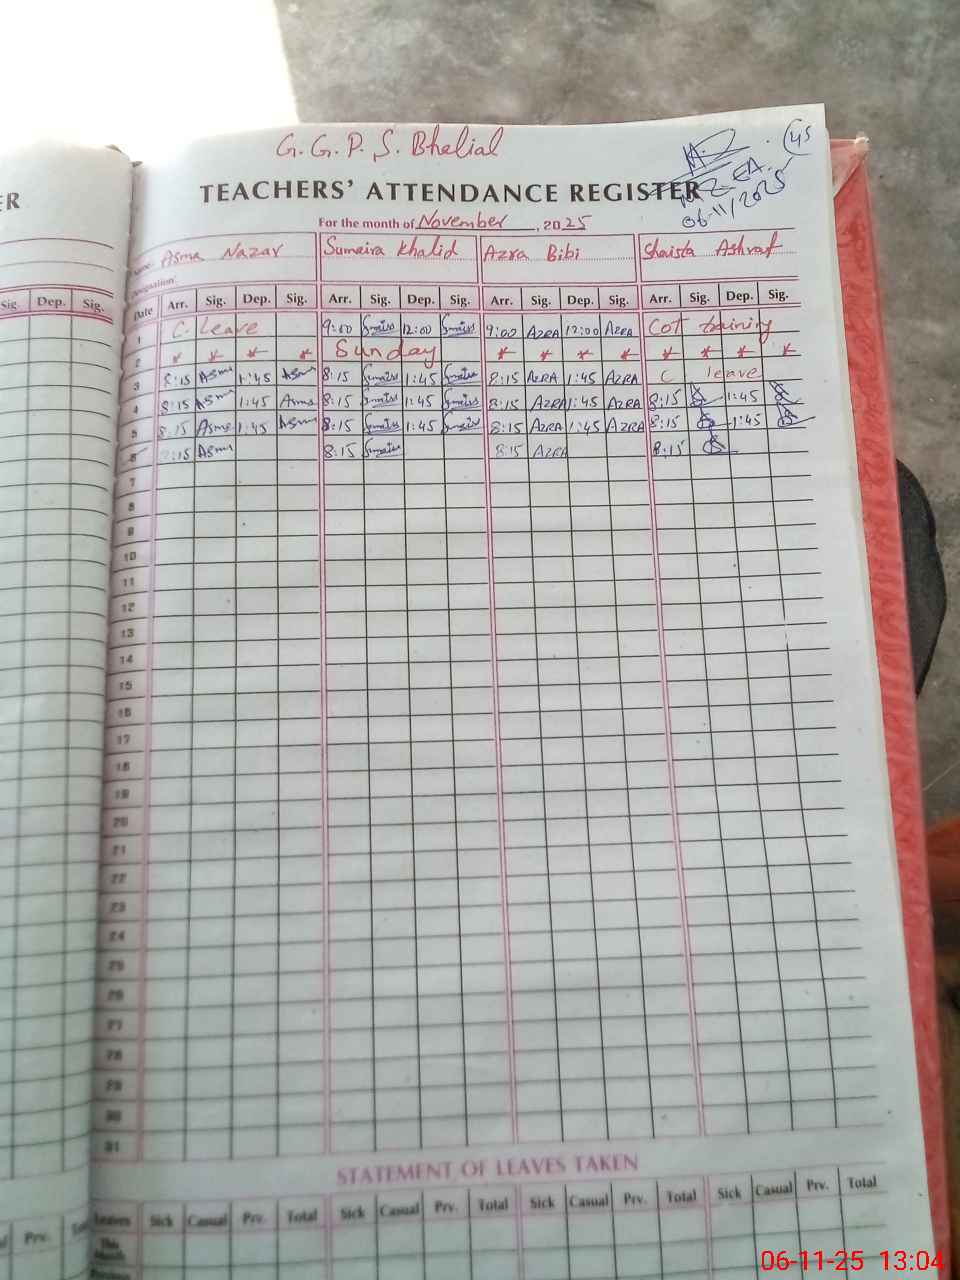 G. G. P. S. Bhelial
45
TEACHERS' ATTENDANCE REGISTER
06-11/2025
For the month of November, 2025
Asma Nazar Sumaira Khalid Azra Bibi Shaista Ashraf
Sig. Dep. Sig. Date Arr. Sig. Dep. Sig. Arr. Sig. Dep. Sig. Arr. Sig. Dep. Sig. Arr. Sig. Dep. Sig.
1 C. Leave 9:00 12:00 9:00 AZRA 12:00 AZRA COT training
2 * * * * Sunday * * * * * * * *
3 8:15 Asma 1:45 Asma 8:15 1:45 8:15 AZRA 1:45 AZRA C leave
4 8:15 Asma 1:45 Asma 8:15 1:45 8:15 AZRA 1:45 AZRA 8:15 1:45
5 8:15 Asma 1:45 Asma 8:15 1:45 8:15 AZRA 1:45 AZRA 8:15 1:45
6 8:15 Asma 8:15 8:15 AZRA 8:15
7
8
9
10
11
12
13
14
15
16
17
18
19
20
21
22
23
24
25
26
27
28
29
30
31
STATEMENT OF LEAVES TAKEN
Prv. Leaves Sick Casual Prv. Total Sick Casual Prv. Total Sick Casual Prv. Total Sick Casual Prv. Total
This
Month
06-11-25 13:04